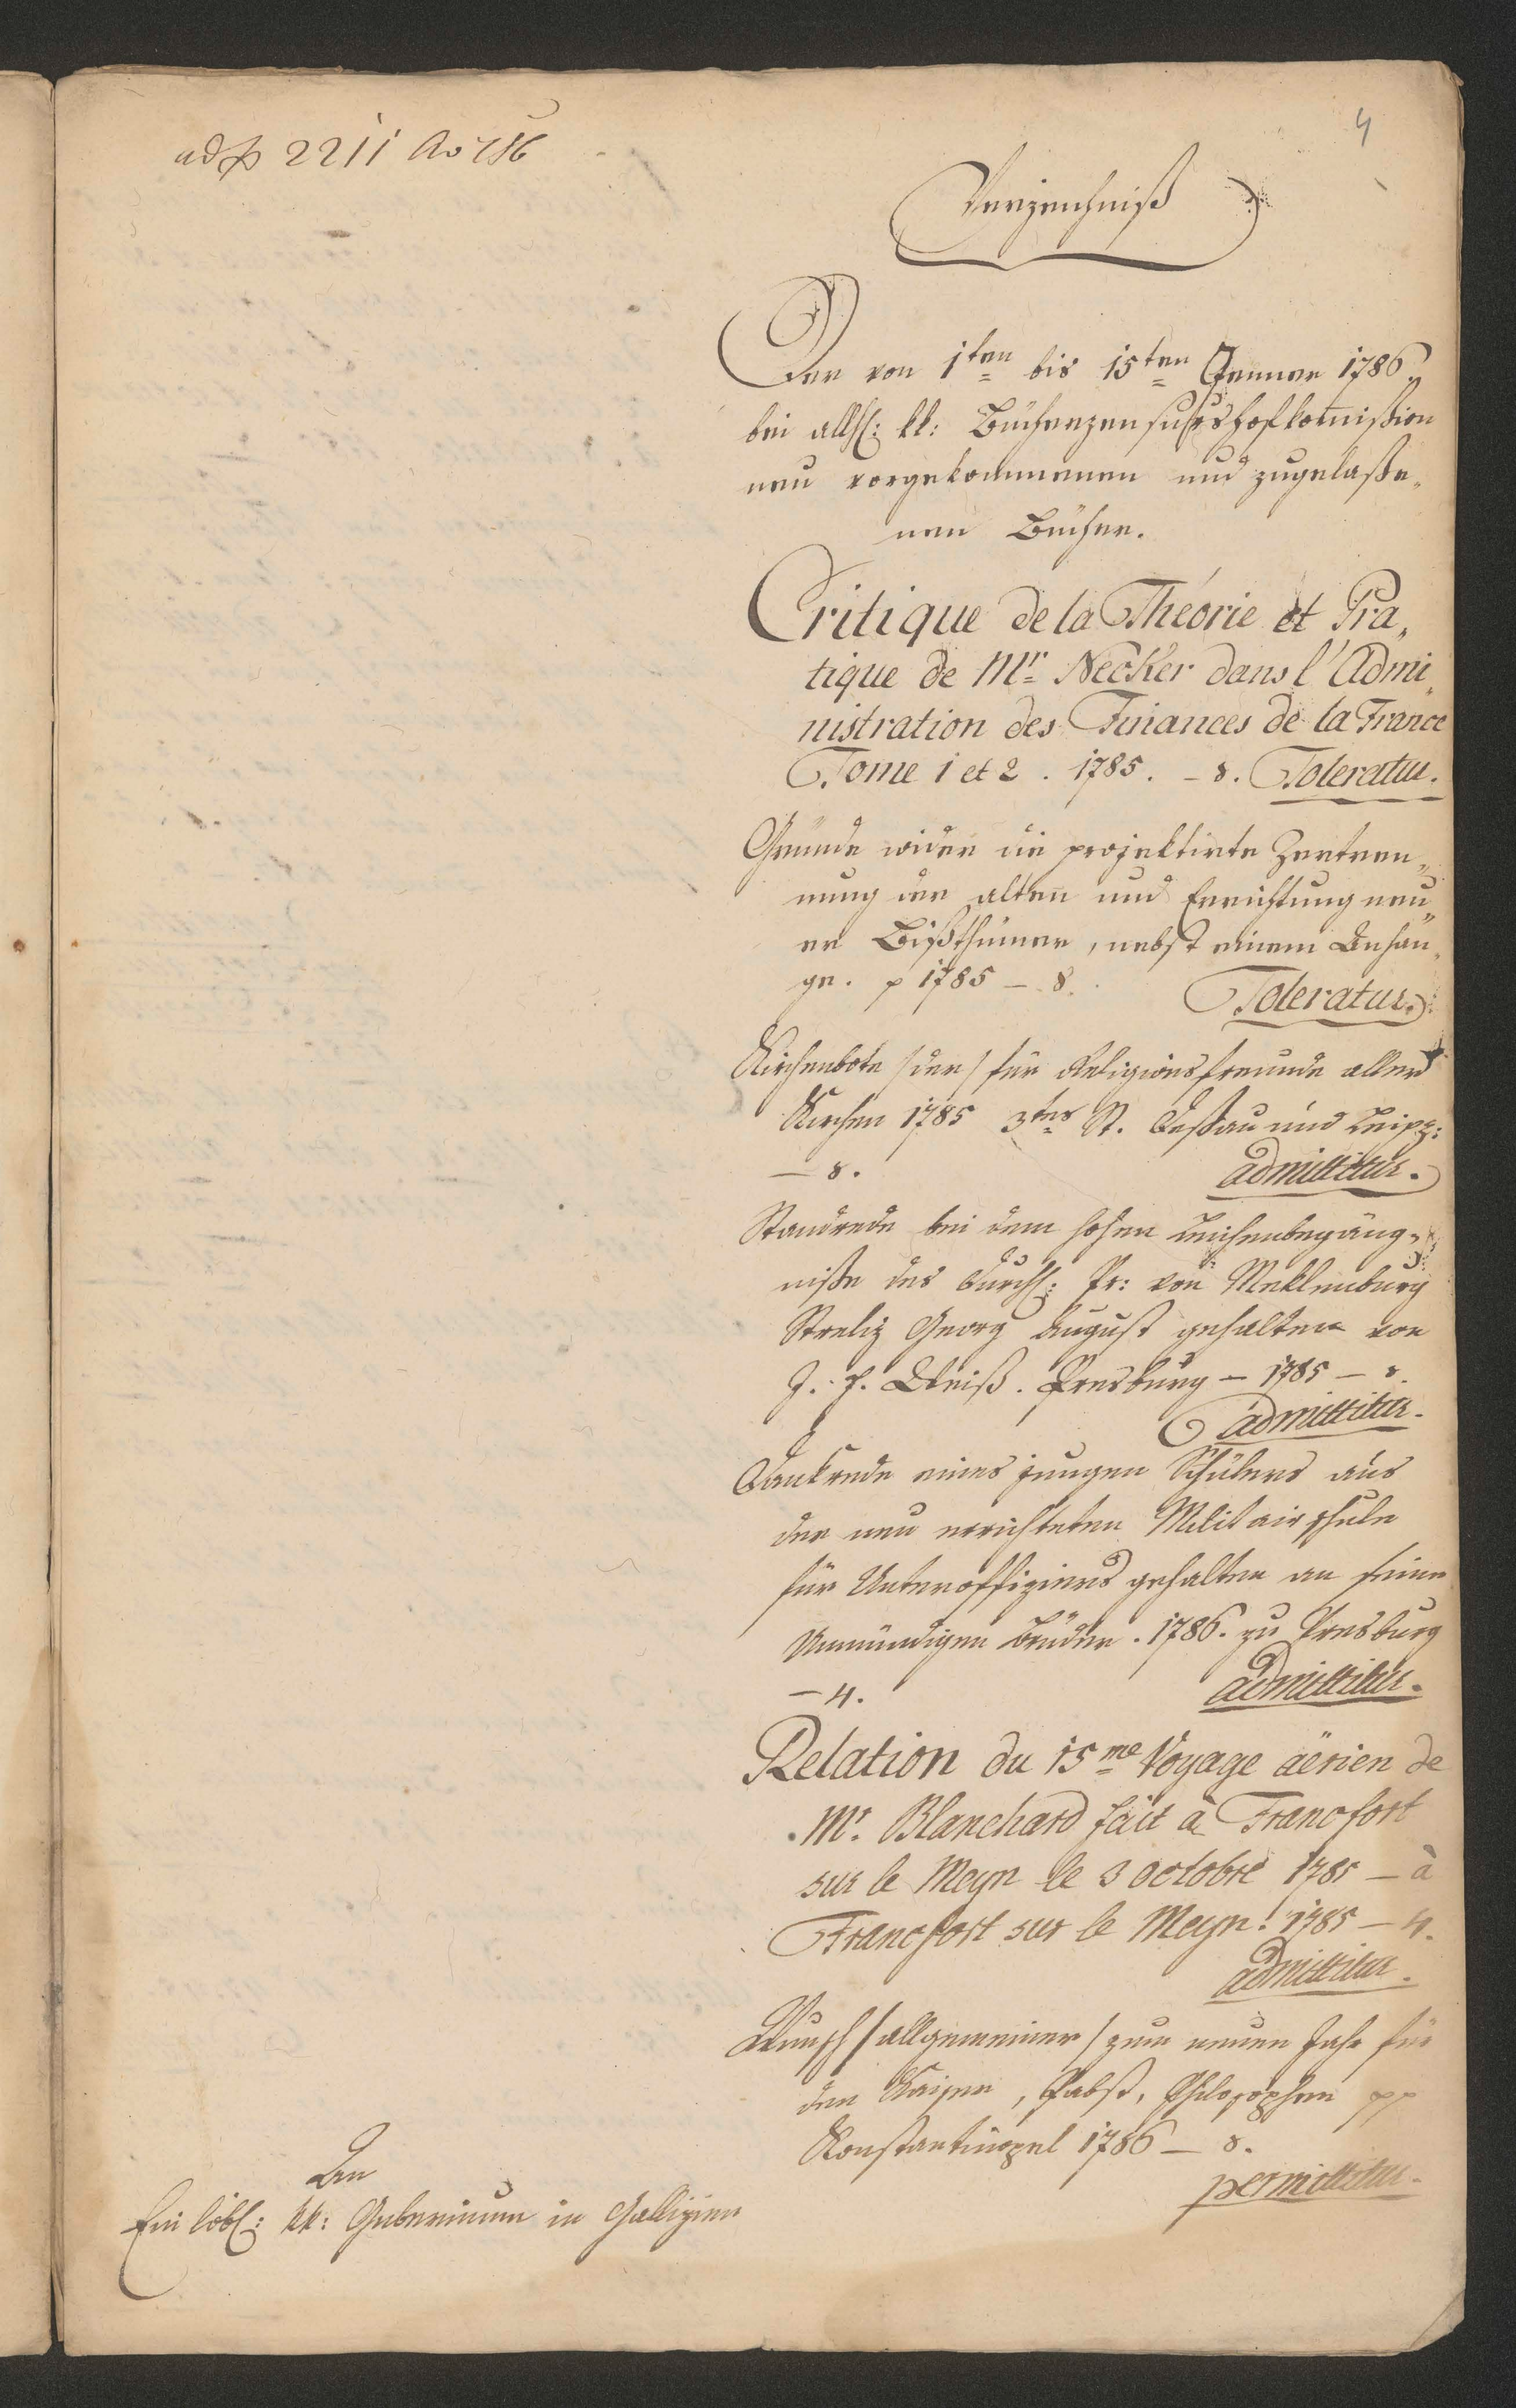 ad № 2211 Ao 786
4
Verzeichniß
Der von 1ten bis 15ten Jenner 1786
bei allh: kk: Bücherzensurshofkom̄ißion
neu vorgekommenen und zugelaße„
nen Bücher.
Critique de la Théorie et Pra„
tique de Mr Necker dans l'Admi„
nistration des Finances de la France
Tome 1 et 2. 1785. – 8. Toleratur.
Gründe wider die projektirte Zertren„
nung der alten und Errichtung neu„
er Bißthümer, nebst einem Anhan„
ge. p 1785 – 8. Toleratur.
Kirchenbote /der/ für Religionsfreunde aller
Kirchen 1785 3tes St. Deßau und Leipz:
– 8. admittitur.
Standrede bei dem hohen Leichenbegäng„
niße des durchl: Pr: von Meklenburg
Streliz Georg August gehalten von
J. F. Weiß. Presburg – 1785 – 8.
admittitur.
Dankrede eines jungen Schülers aus
der neu errichteten Militairschule
für Unteroffiziers gehalten an seine
Unmündigen Brüder. 1786. zu Presburg
– 4. admittitur.
Relation du 15me Voyage aërien de
Mr. Blanchard fait à Francfort
sur le Meyn le 3 octobre 1785 – à
Francfort sur le Meyn. 1785 – 4.
admittitur.
Wunsch /allgemeiner/ zum neuen Jahr für
den Kaiser, Pabst, Philosophen pp
Konstantinopel 1786 – 8.
permittitur.
An
Ein löbl: kk: Gubernium in Gallizien